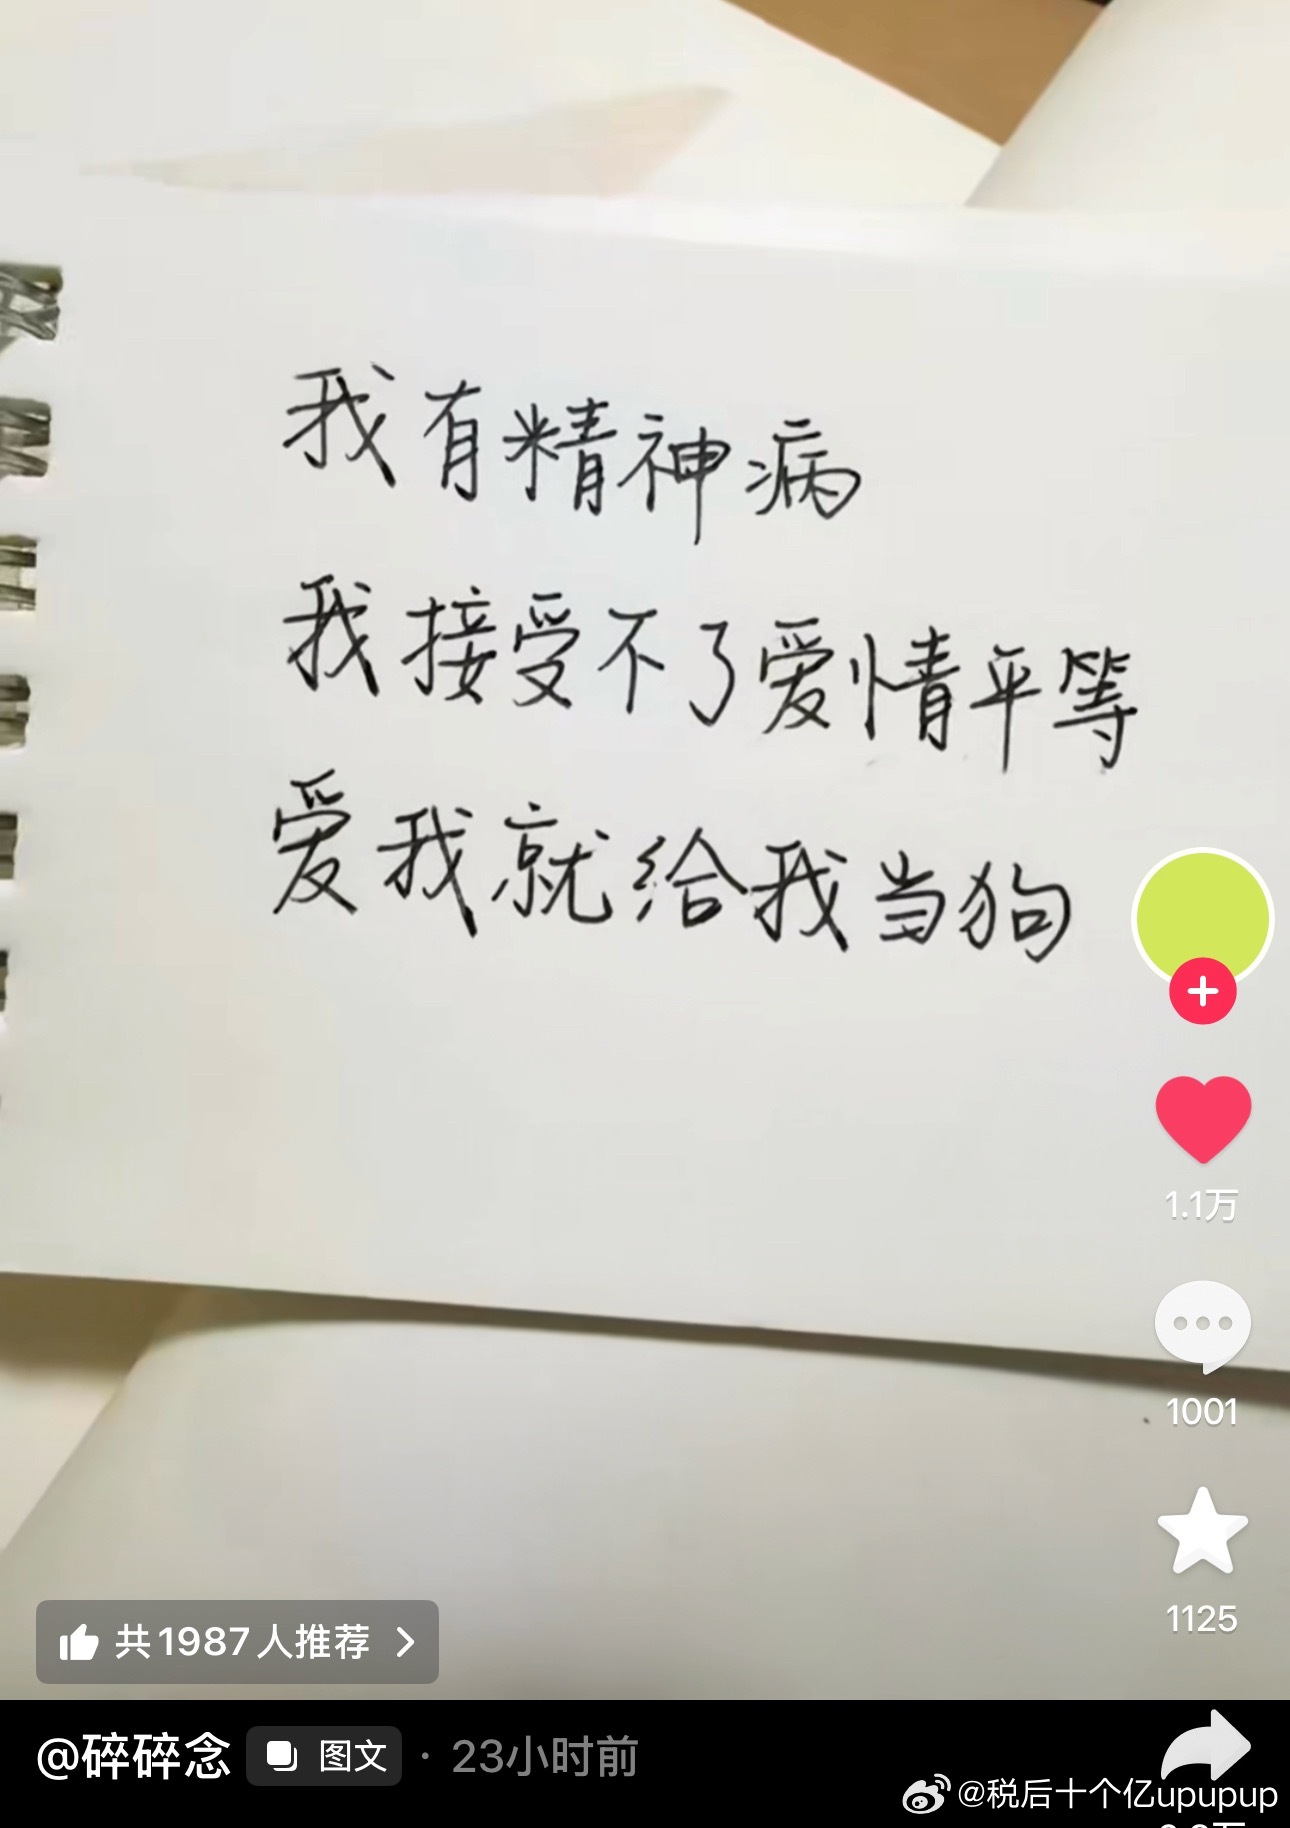 我有精神病
我接受不了爱情平等
爱我就给我当狗
1.1万
1001
1125
共1987人推荐
@碎碎念 图文 · 23小时前
@税后十个亿upupup